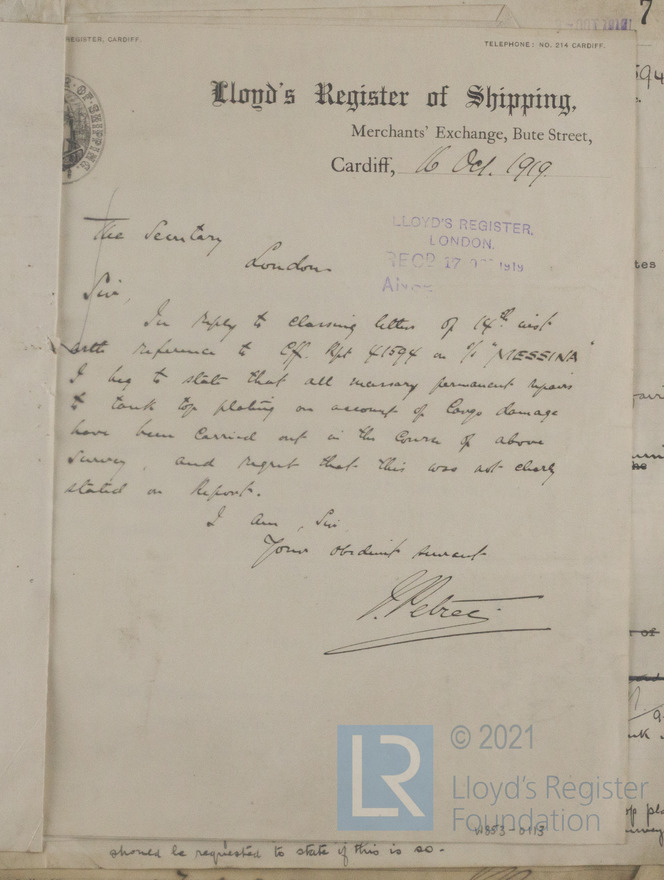 7
REGISTER, CARDIFF.
TELEPHONE: NO. 214 CARDIFF.
594
OF SHIPPING.
Lloyd's Register of Shipping,
Merchants' Exchange, Bute Street,
Cardiff, 16 Oct. 1919.
LLOYD'S REGISTER,
LONDON.
REC'D 17 1919
The Secretary
London
Sir,
In reply to classing letter of 14th inst
with reference to Cff. Rpt 41594 on S/S "MESSINA"
I beg to state that all necessary permanent repairs
to tank top plating on account of Cargo damage
have been carried out in the course of above
survey, and regret that this was not clearly
stated on Report.
I am, Sir
Your obedient servant
LR
© 2021
Lloyd's Register
Foundation
W853-0113
should be requested to state if this is so.